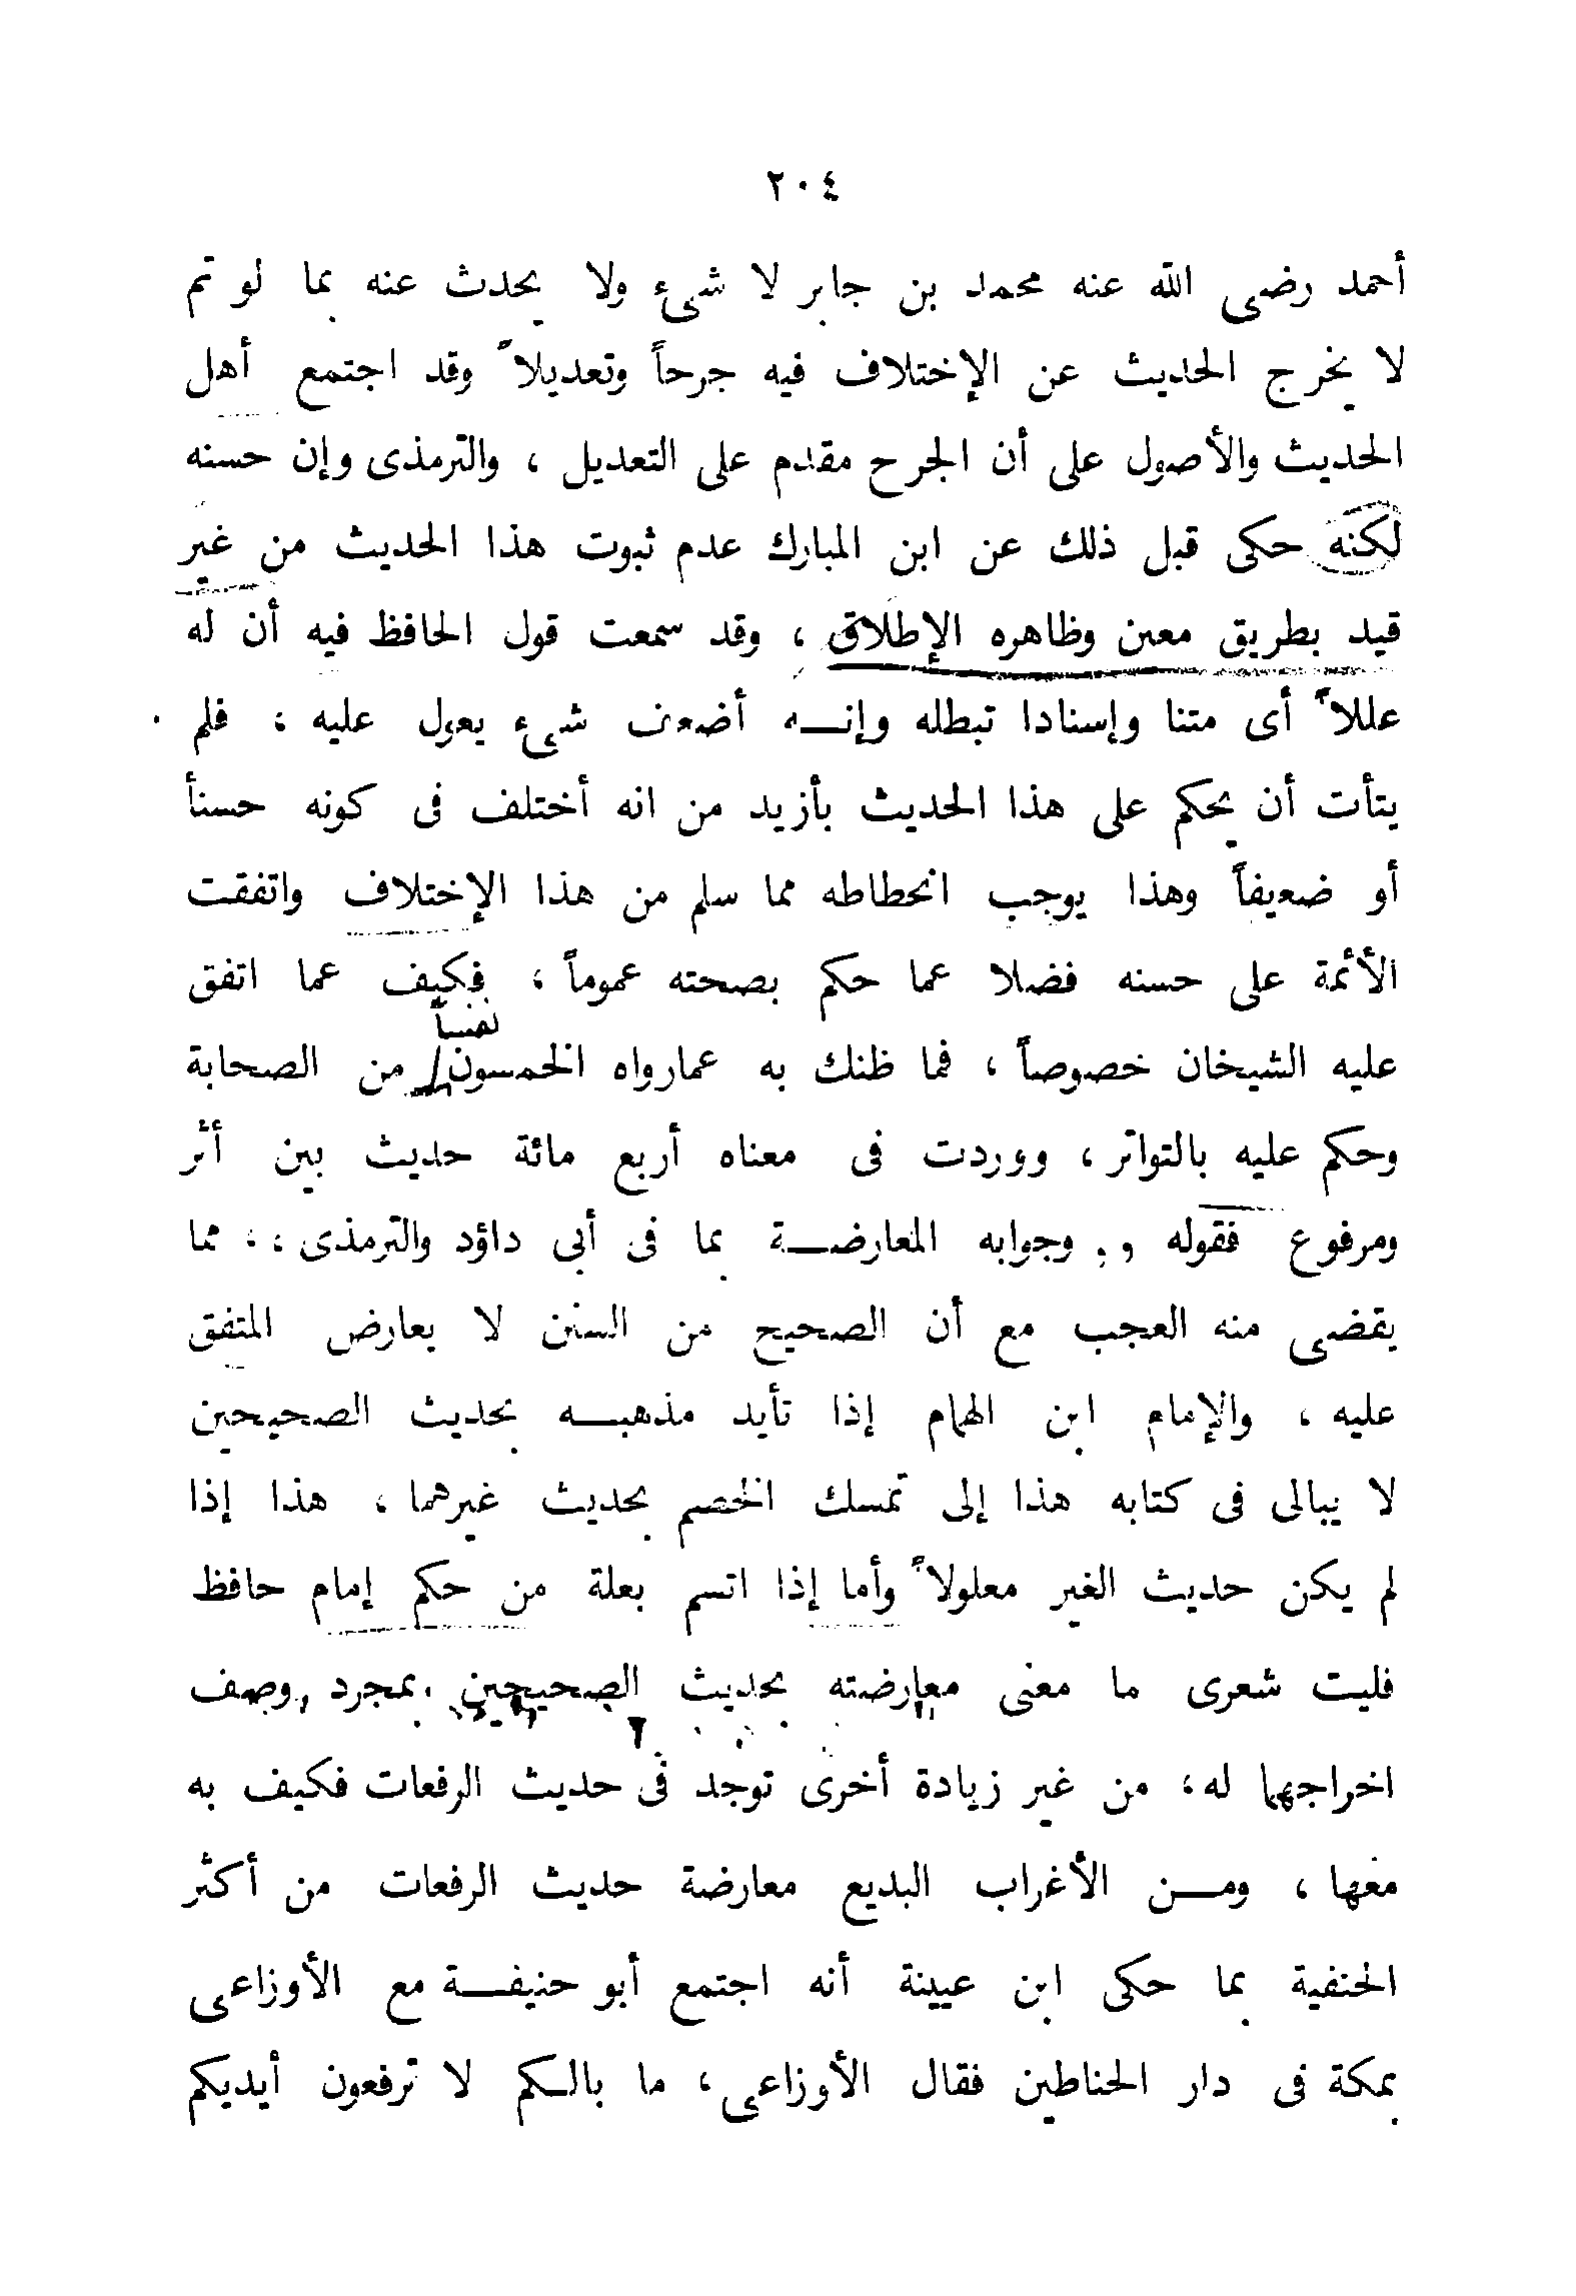 ٢٠٤
أحمد رضى الله عنه محمد بن جابر لا شىء ولا يحدث عنه بما لو تم
لا يخرج الحديث عن الإختلاف فيه جرحاً وتعديلاً وقد اجتمع أهل
الحديث والأصول على أن الجرح مقدم على التعديل ، والترمذى وإن حسنه
لكنه حكى قبل ذلك عن ابن المبارك عدم ثبوت هذا الحديث من غير
قيد بطريق معين وظاهره الإطلاق ، وقد سمعت قول الحافظ فيه أن له
عللاً أى متنا وإسنادا تبطله وإنـــه أضعف شىء يعول عليه ، فلم
يتأت أن يحكم على هذا الحديث بأزيد من انه أختلف فى كونه حسنأ
أو ضعيفاً وهذا يوجب انحطاطه مما سلم من هذا الإختلاف واتفقت
الأئمة على حسنه فضلا عما حكم بصحته عموماً ، فكيف عما اتفق
عليه الشيخان خصوصاً ، فما ظنك به عمارواه الخمسون نفساً من الصحابة
وحكم عليه بالتواتر ، ووردت فى معناه أربع مائة حديث بين أثر
ومرفوع فقوله ,, وجوابه المعارضـــة بما فى أبى داؤد والترمذى ،، مما
يقضى منه العجب مع أن الصحيح من السنن لا يعارض المتفق
عليه ، والإمام ابن الهمام إذا تأيد مذهبـــه بحديث الصحيحين
لا يبالى فى كتابه هذا إلى تمسك الخصم بحديث غيرهما ، هذا إذا
لم يكن حديث الغير معلولاً وأما إذا اتسم بعلة من حكم إمام حافظ
فليت شعرى ما معنى معارضته بحديث الصحيحين بمجرد وصف
اخراجهما له ، من غير زيادة أخرى توجد فى حديث الرفعات فكيف به
معها ، ومـــن الأغراب البديع معارضة حديث الرفعات من أكثر
الحنفية بما حكى ابن عيينة أنه اجتمع أبو حنيفـــة مع الأوزاعى
بمكة فى دار الحناطين فقال الأوزاعى ، ما بالكم لا ترفعون أيديكم